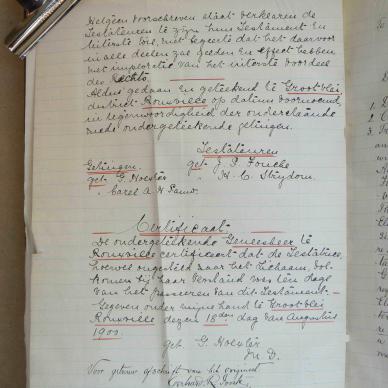 Hetgeen voorschreven staat verklaren de
Testateuren te zijn hun Testament en
uiterste wil, met begeerte dat het daarvoor
in alle deelen zal gelden en effect hebben
met imploratie van het uiterste voordeel
des Rechts.
Aldus gedaan en geteekend te Grootvlei
district Rouxville op datum voornoemd
in tegenwoordigheid der onderstaande
mede ondergeteekende getuigen.
Testateuren
Getuigen get. J. P. Fouche
get. G. Hoexter H. C. Strydom
" Carel A. H.
Certificaat
De ondergeteekende Geneesheer te
Rouxville certificeert dat de Testatrice,
hoewel ongesteld naar het lichaam, vol-
komen bij haar verstand was ten dage
van het passeren van dit Testament.
Gegeven onder mijne hand te Grootvlei
Rouxville dezen 18den dag van Augustus
1900.
get. G. Hoexter
M. D.
Voor getrouw afschrift van het origineel